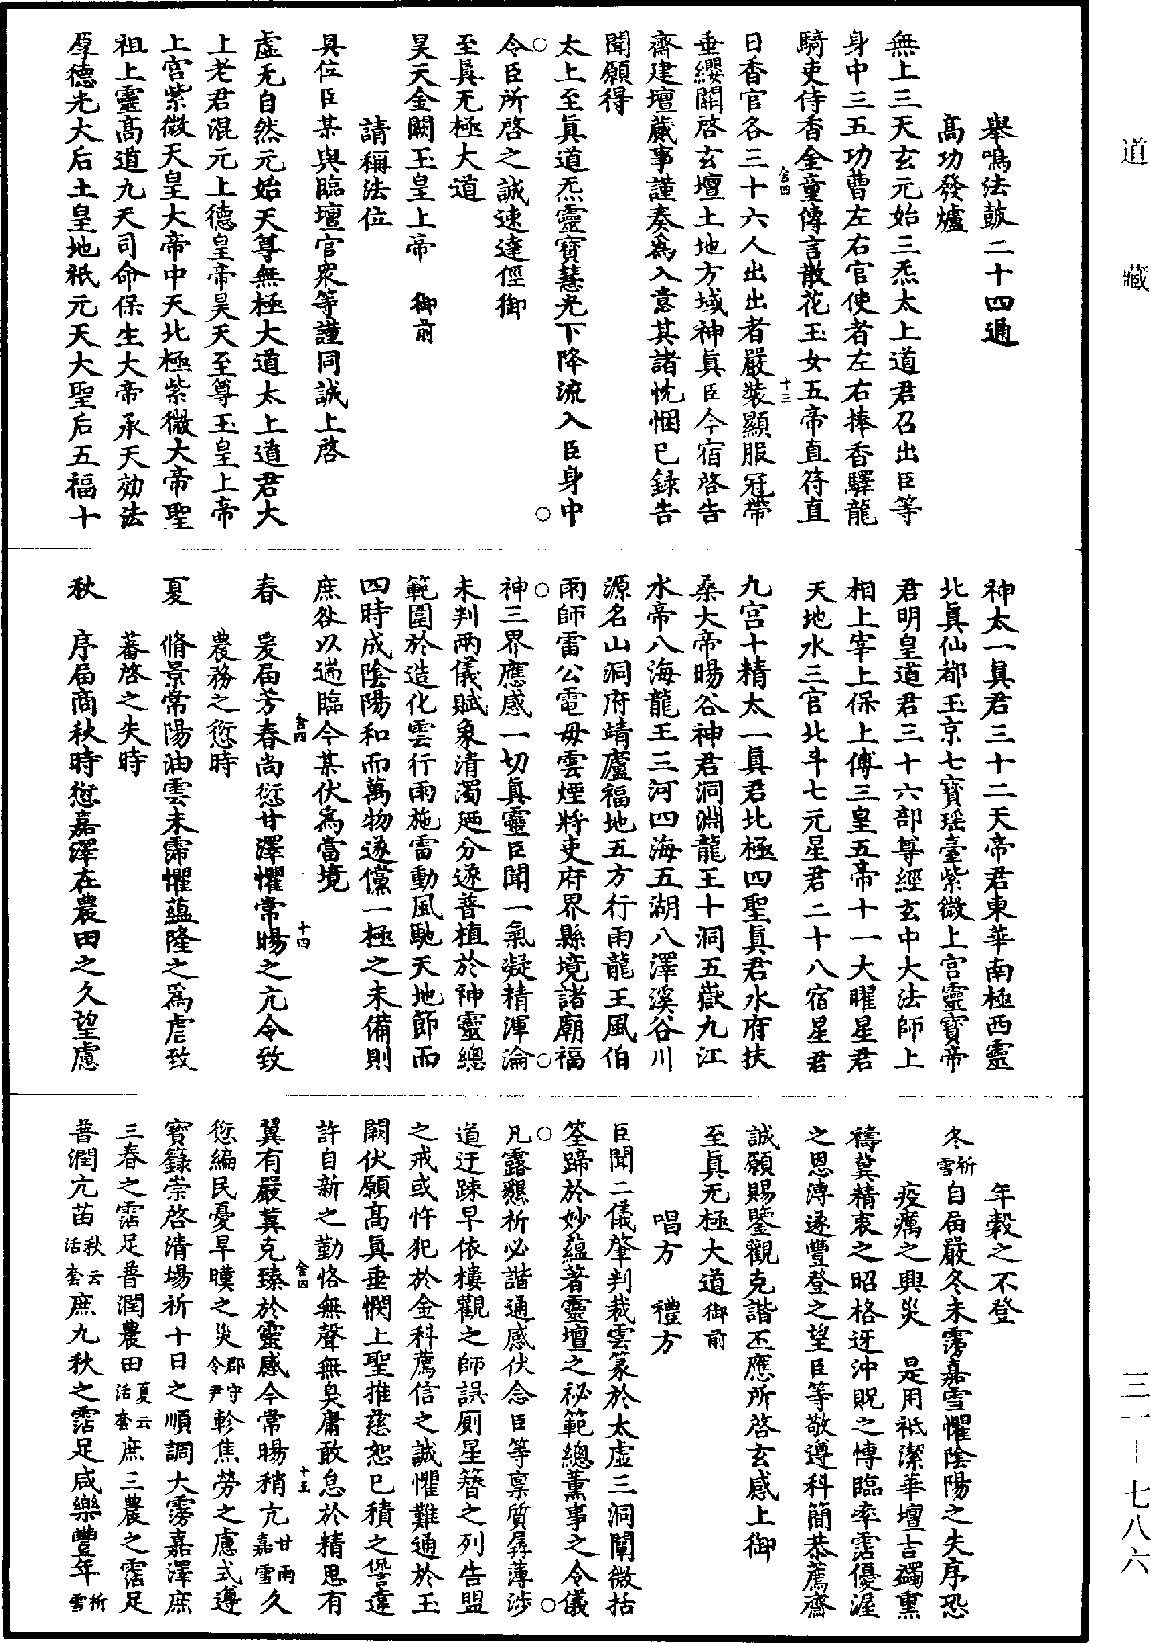 道藏
三一—七八六
舉鳴法鼓二十四通
高功發爐
無上三天玄元始三炁太上道君召出臣等
身中三五功曹左右官使者左右捧香驛龍
騎吏侍香金童傳言散花玉女五帝直符直
日香官各三十六人出出者嚴裝顯服冠帶
垂纓關啓玄壇土地方域神真臣今宿啓告
齋建壇蕆事謹奏為入意其諸忱悃已錄告
聞願得
太上至真道炁靈寶慧光下降流入臣身中
令臣所啓之誠速達徑御
至真无極大道
昊天金闕玉皇上帝 御前
請稱法位
具位臣某與臨壇官眾等謹同誠上啓
虛无自然元始天尊無極大道太上道君太
上老君混元上德皇帝昊天至尊玉皇上帝
上宮紫微天皇大帝中天北極紫微大帝聖
祖上靈高道九天司命保生大帝承天効法
厚德光大后土皇地祇元天大聖后五福十
神太一真君三十二天帝君東華南極西靈
北真仙都玉京七寶瑤臺紫微上宮靈寶帝
君明皇道君三十六部尊經玄中大法師上
相上宰上保上傅三皇五帝十一大曜星君
天地水三官北斗七元星君二十八宿星君
九宮十精太一真君北極四聖真君水府扶
桑大帝暘谷神君洞淵龍王十洞五嶽九江
水帝八海龍王三河四海五湖八澤溪谷川
源名山洞府靖廬福地五方行雨龍王風伯
雨師雷公電母雲煙將吏府界縣境諸廟福
神三界應感一切真靈臣聞一氣凝精渾淪
未判兩儀賦象清濁廼分遂普植於神靈總
範圍於造化雲行雨施雷動風馳天地節而
四時成陰陽和而萬物遂儻一極之未備則
庶咎以遄臨今某伏為當境
春 爰届芳春尚愆甘澤懼常暘之亢令致
農務之愆時
夏 脩景常陽油雲未霈懼蘊隆之為虐致
蕃啓之失時
秋 序届商秋時愆嘉澤在農田之久望慮
年穀之不登
冬祈雪 自届嚴冬未霶嘉雪懼陰陽之失序恐
疫癘之興災 是用祇潔華壇吉蠲熏
禱冀精衷之昭格迓沖貺之愽臨率霑優渥
之恩溥遂豐登之望臣等敬遵科簡恭薦齋
誠願賜鑒觀克諧丕應所啓玄感上御
至真无極大道御前
唱方 禮方
臣聞二儀肇判裁雲篆於太虛三洞闡微括
筌蹄於妙蘊著靈壇之祕範總薰事之令儀
凡露懇祈必諧通感伏念臣等稟質孱薄涉
道迂踈早依樓觀之師誤厠星簪之列告盟
之戒或忤犯於金科薦信之誠懼難通於玉
闕伏願高真垂憫上聖推慈恕已積之愆違
許自新之勤恪無聲無臭庸敢怠於精思有
翼有嚴冀克臻於靈感今常暘稍亢甘雨嘉雪久
愆編民憂旱暵之災郡守令尹軫焦勞之慮式遵
寶籙崇啓清場祈十日之順調大霶嘉澤庶
三春之霑足普潤農田夏云活套庶三農之霑足
普潤亢苗秋云活套庶九秋之霑足咸樂豐年祈雪